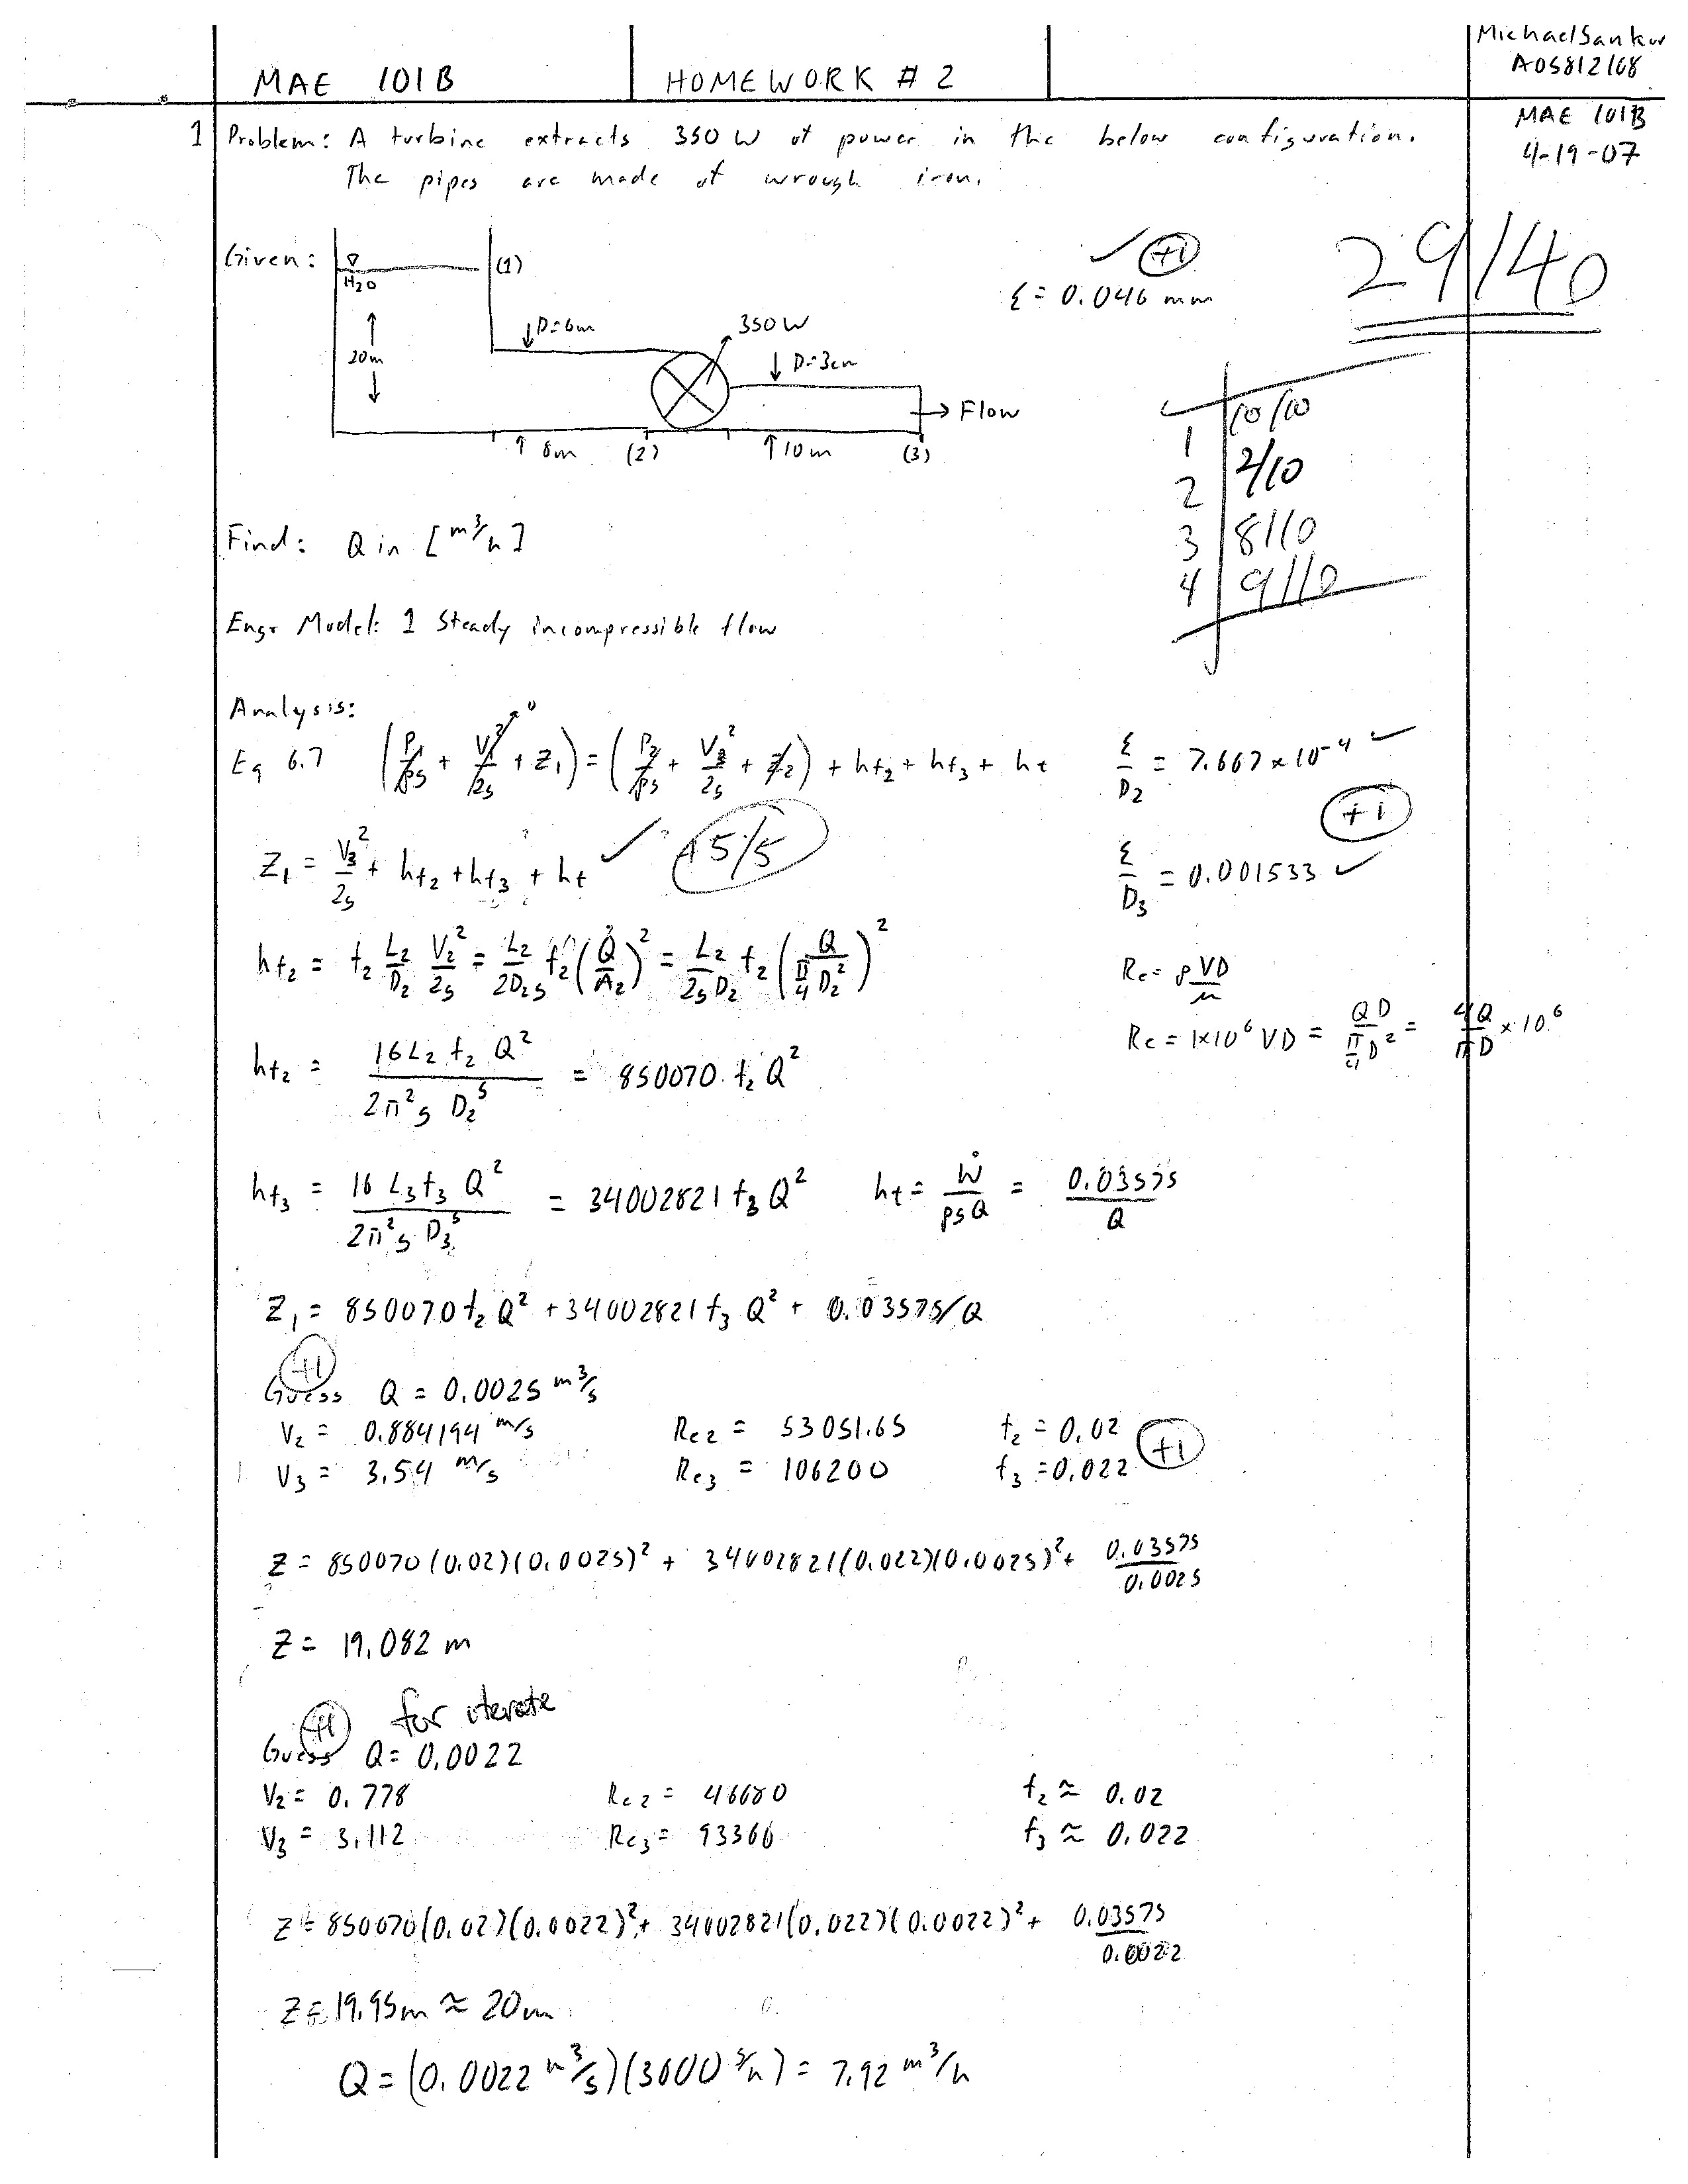 MAE 101B HOMEWORK # 2
Michael Sankur
A05812168
MAE 101B
4-19-07
1 Problem: A turbine extracts 350 W of power in the below configuration.
The pipes are made of wrough iron.
Given:
H2O
(1)
20m
↓D=6m
350 W
↓ D=3cm
→ Flow
↑ 8m (2) ↑10m (3)
✓ +1
ε = 0.046 mm
29/40
1 10/10
2 2/10
3 8/10
4 9/10
Find: Q in [m³/h]
Engr Model: 1 Steady incompressible flow
Analysis:
Eq 6.7 (P1/ρg + V1²/2g + Z1) = (P3/ρg + V3²/2g + Z2) + hf2 + hf3 + ht
ε/D2 = 7.667×10⁻⁴ ✓
+1
Z1 = V3²/2g + hf2 + hf3 + ht ✓ +5/5
ε/D3 = 0.001533 ✓
hf2 = f2 L2/D2 V2²/2g = L2/2D2g f2 (Q/A2)² = L2/2gD2 f2 (Q/(π/4 D2²))²
Re = ρVD/μ
Re = 1×10⁶ VD = QD/(π/4 D²) = 4Q/πD × 10⁶
hf2 = 16 L2 f2 Q²/2π²g D2⁵ = 850070 f2 Q²
hf3 = 16 L3 f3 Q²/2π²g D3⁵ = 34002821 f3 Q² ht = Ẇ/ρgQ = 0.03575/Q
Z1 = 850070 f2 Q² + 34002821 f3 Q² + 0.03575/Q
+1
Guess Q = 0.0025 m³/s
V2 = 0.884194 m/s Re2 = 53051.65 f2 = 0.02
V3 = 3.54 m/s Re3 = 106200 f3 = 0.022 +1
Z = 850070 (0.02)(0.0025)² + 34002821(0.022)(0.0025)² + 0.03575/0.0025
Z = 19.082 m
+1 for iterate
Guess Q = 0.0022
V2 = 0.778 Re2 = 46680 f2 ≈ 0.02
V3 = 3.112 Re3 = 93360 f3 ≈ 0.022
Z = 850070(0.02)(0.0022)² + 34002821(0.022)(0.0022)² + 0.03575/0.0022
Z = 19.95m ≈ 20m
Q = (0.0022 m³/s)(3600 s/h) = 7.92 m³/h